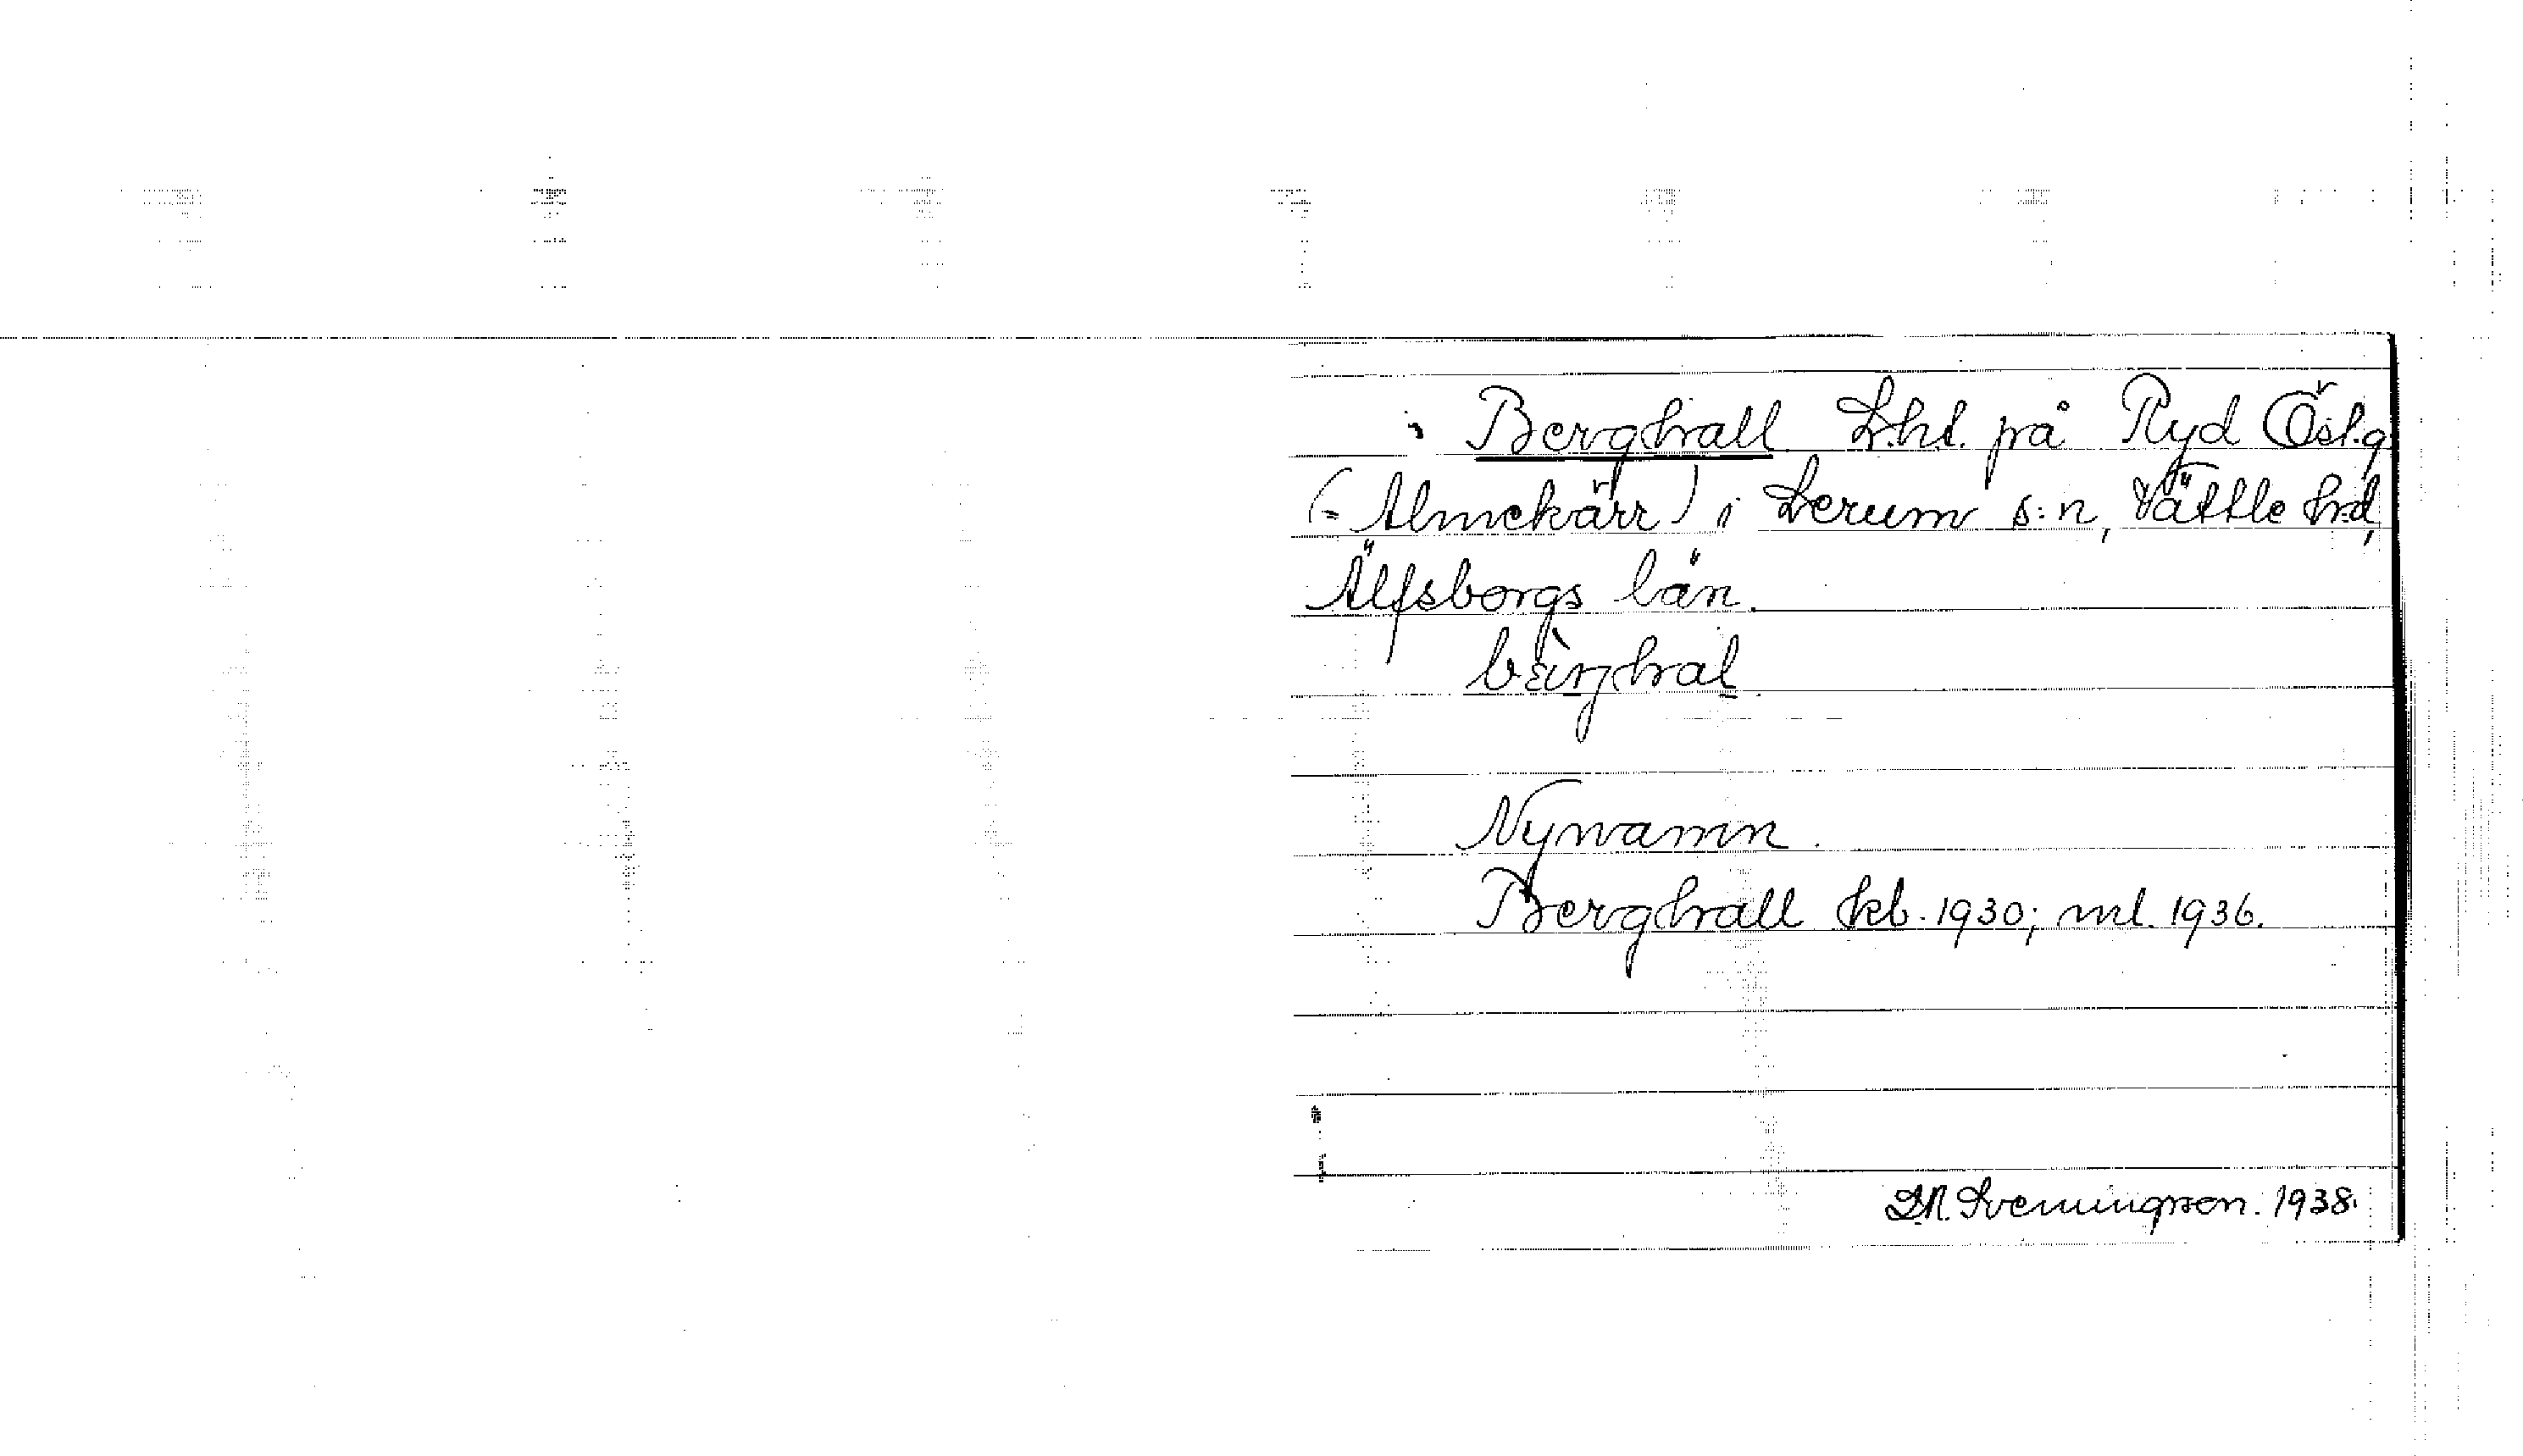 Berghall Lht. på Ryd Östg.
(= Almekärr) i Lerum s:n, Vättle hd,
Älfsborgs län.
Nynamn.
Berghall kb. 1930; ml. 1936.
Svenningson. 1938.